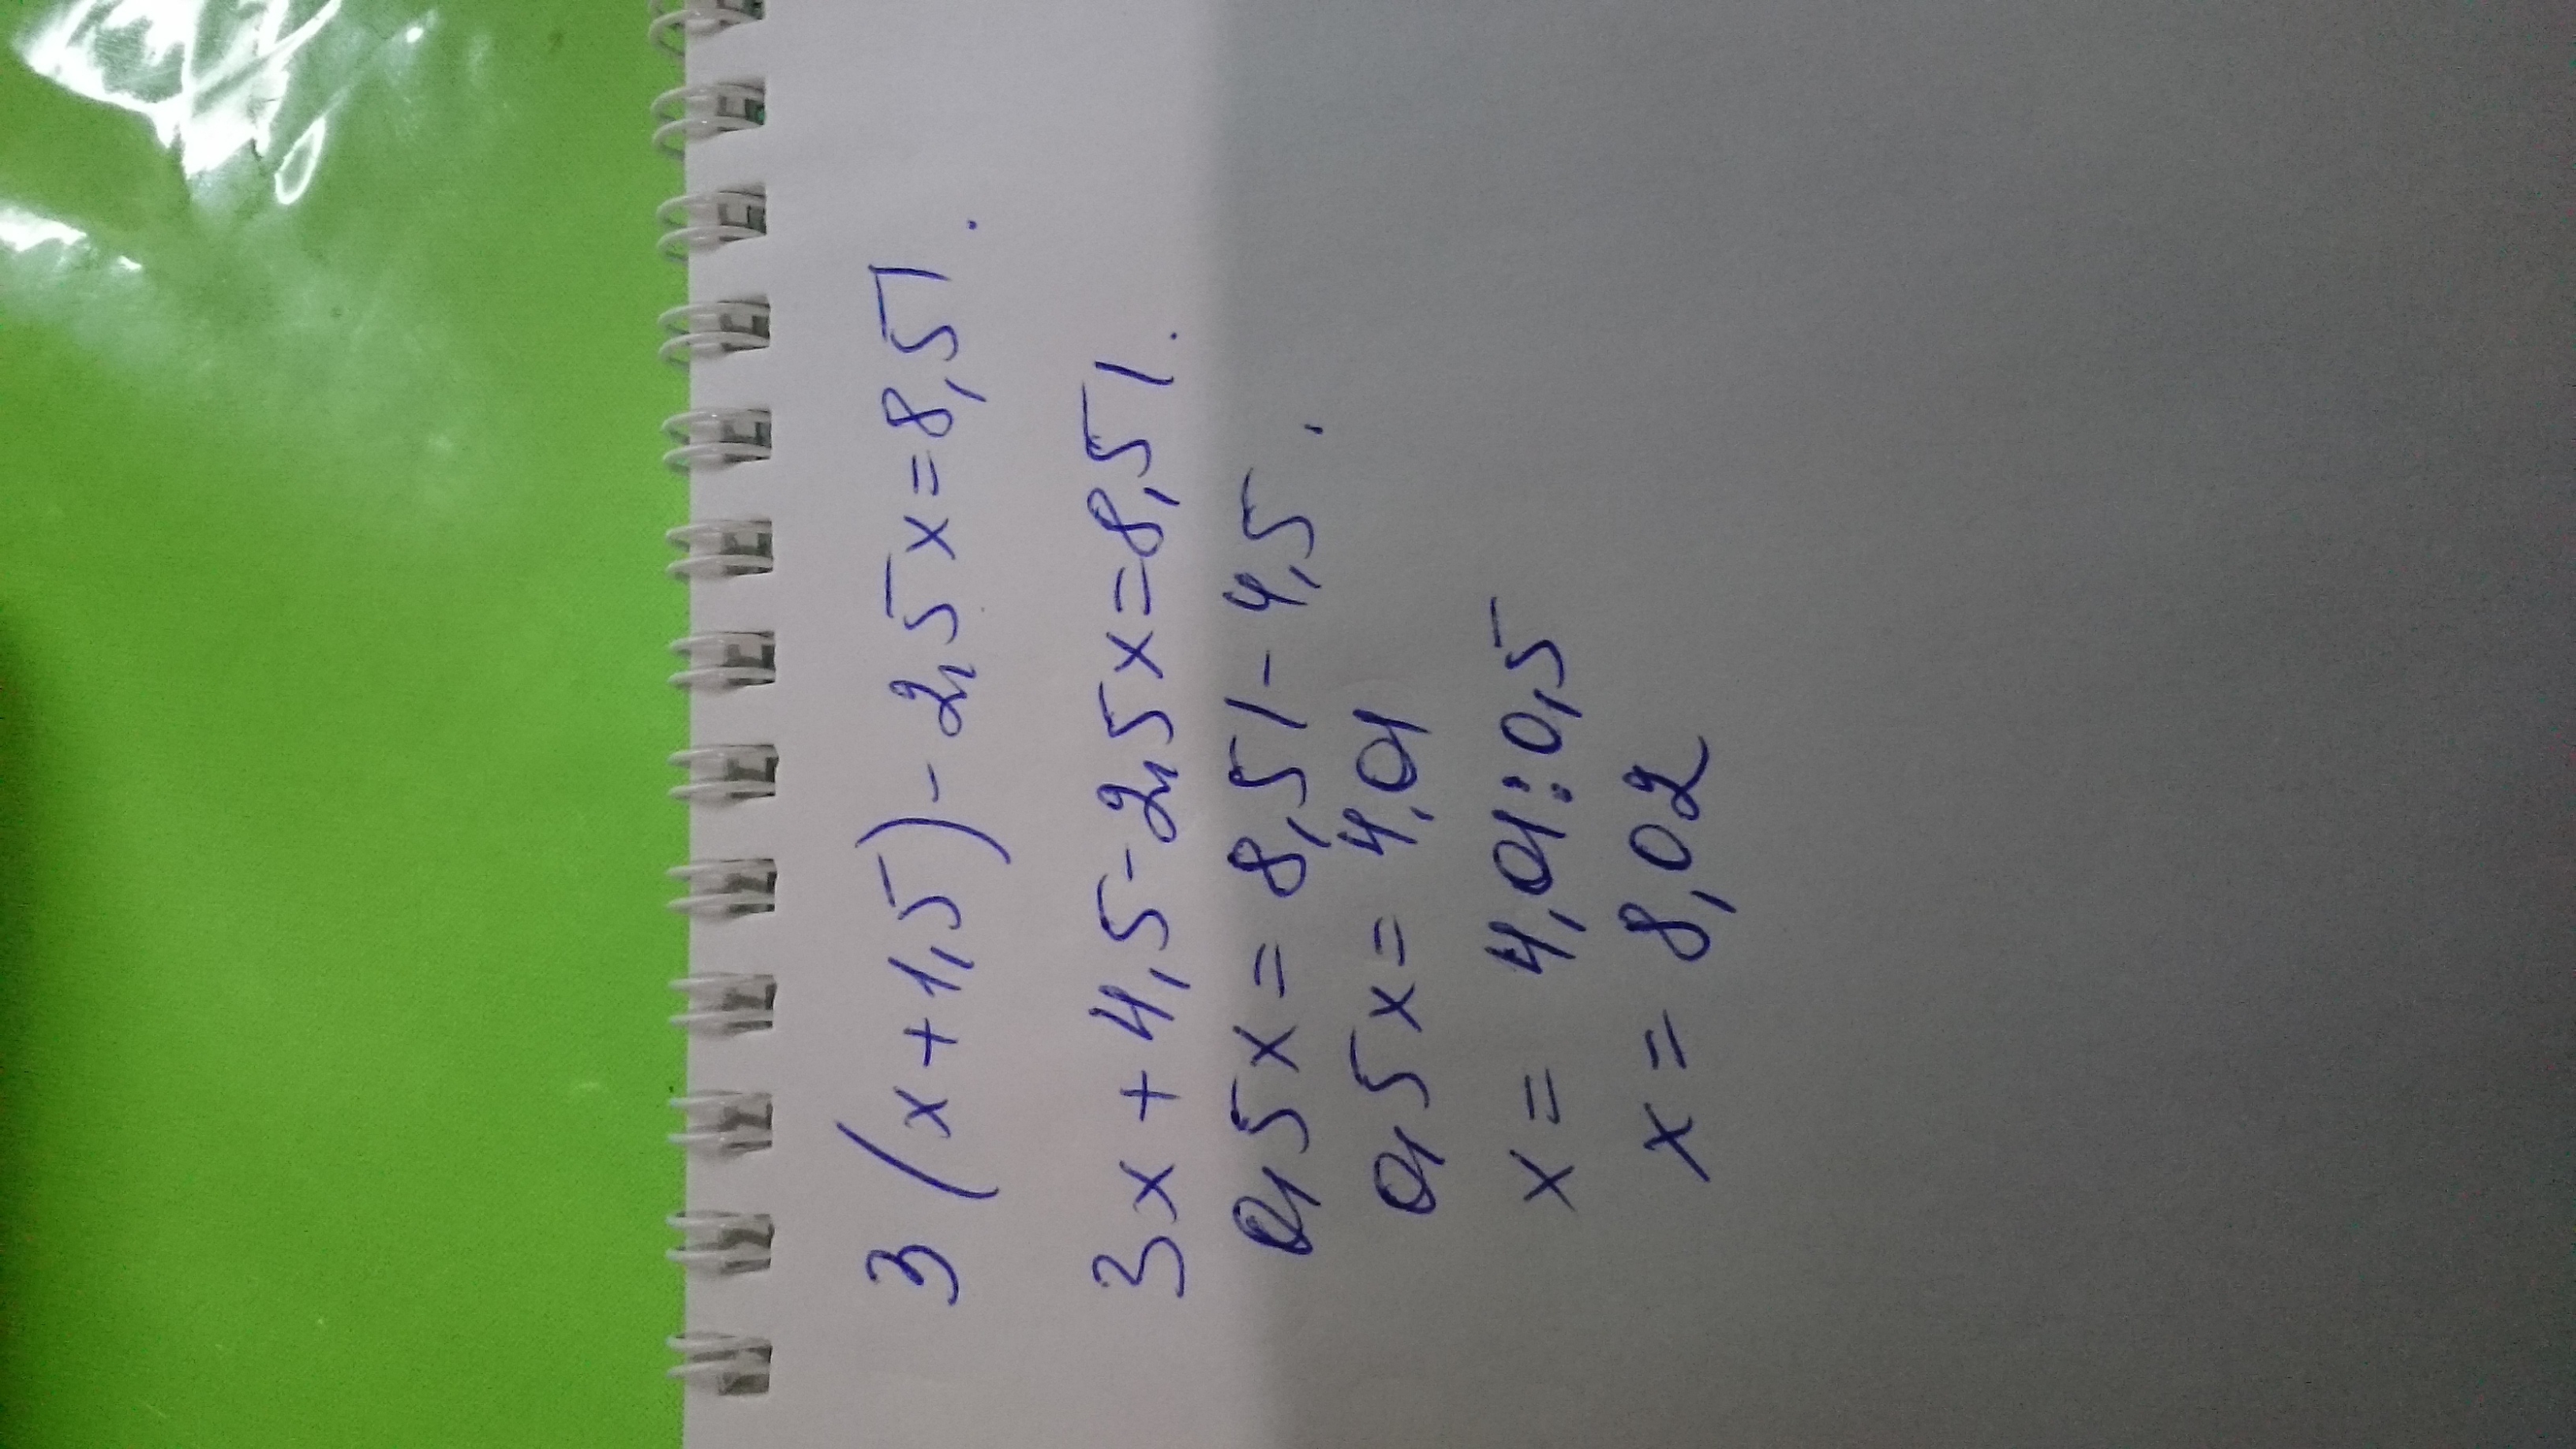 3(x+1,5)-2,5x=8,51.
3x+4,5-2,5x=8,51.
0,5x=8,51-4,5.
0,5x=4,01
x=4,01:0,5
x=8,02